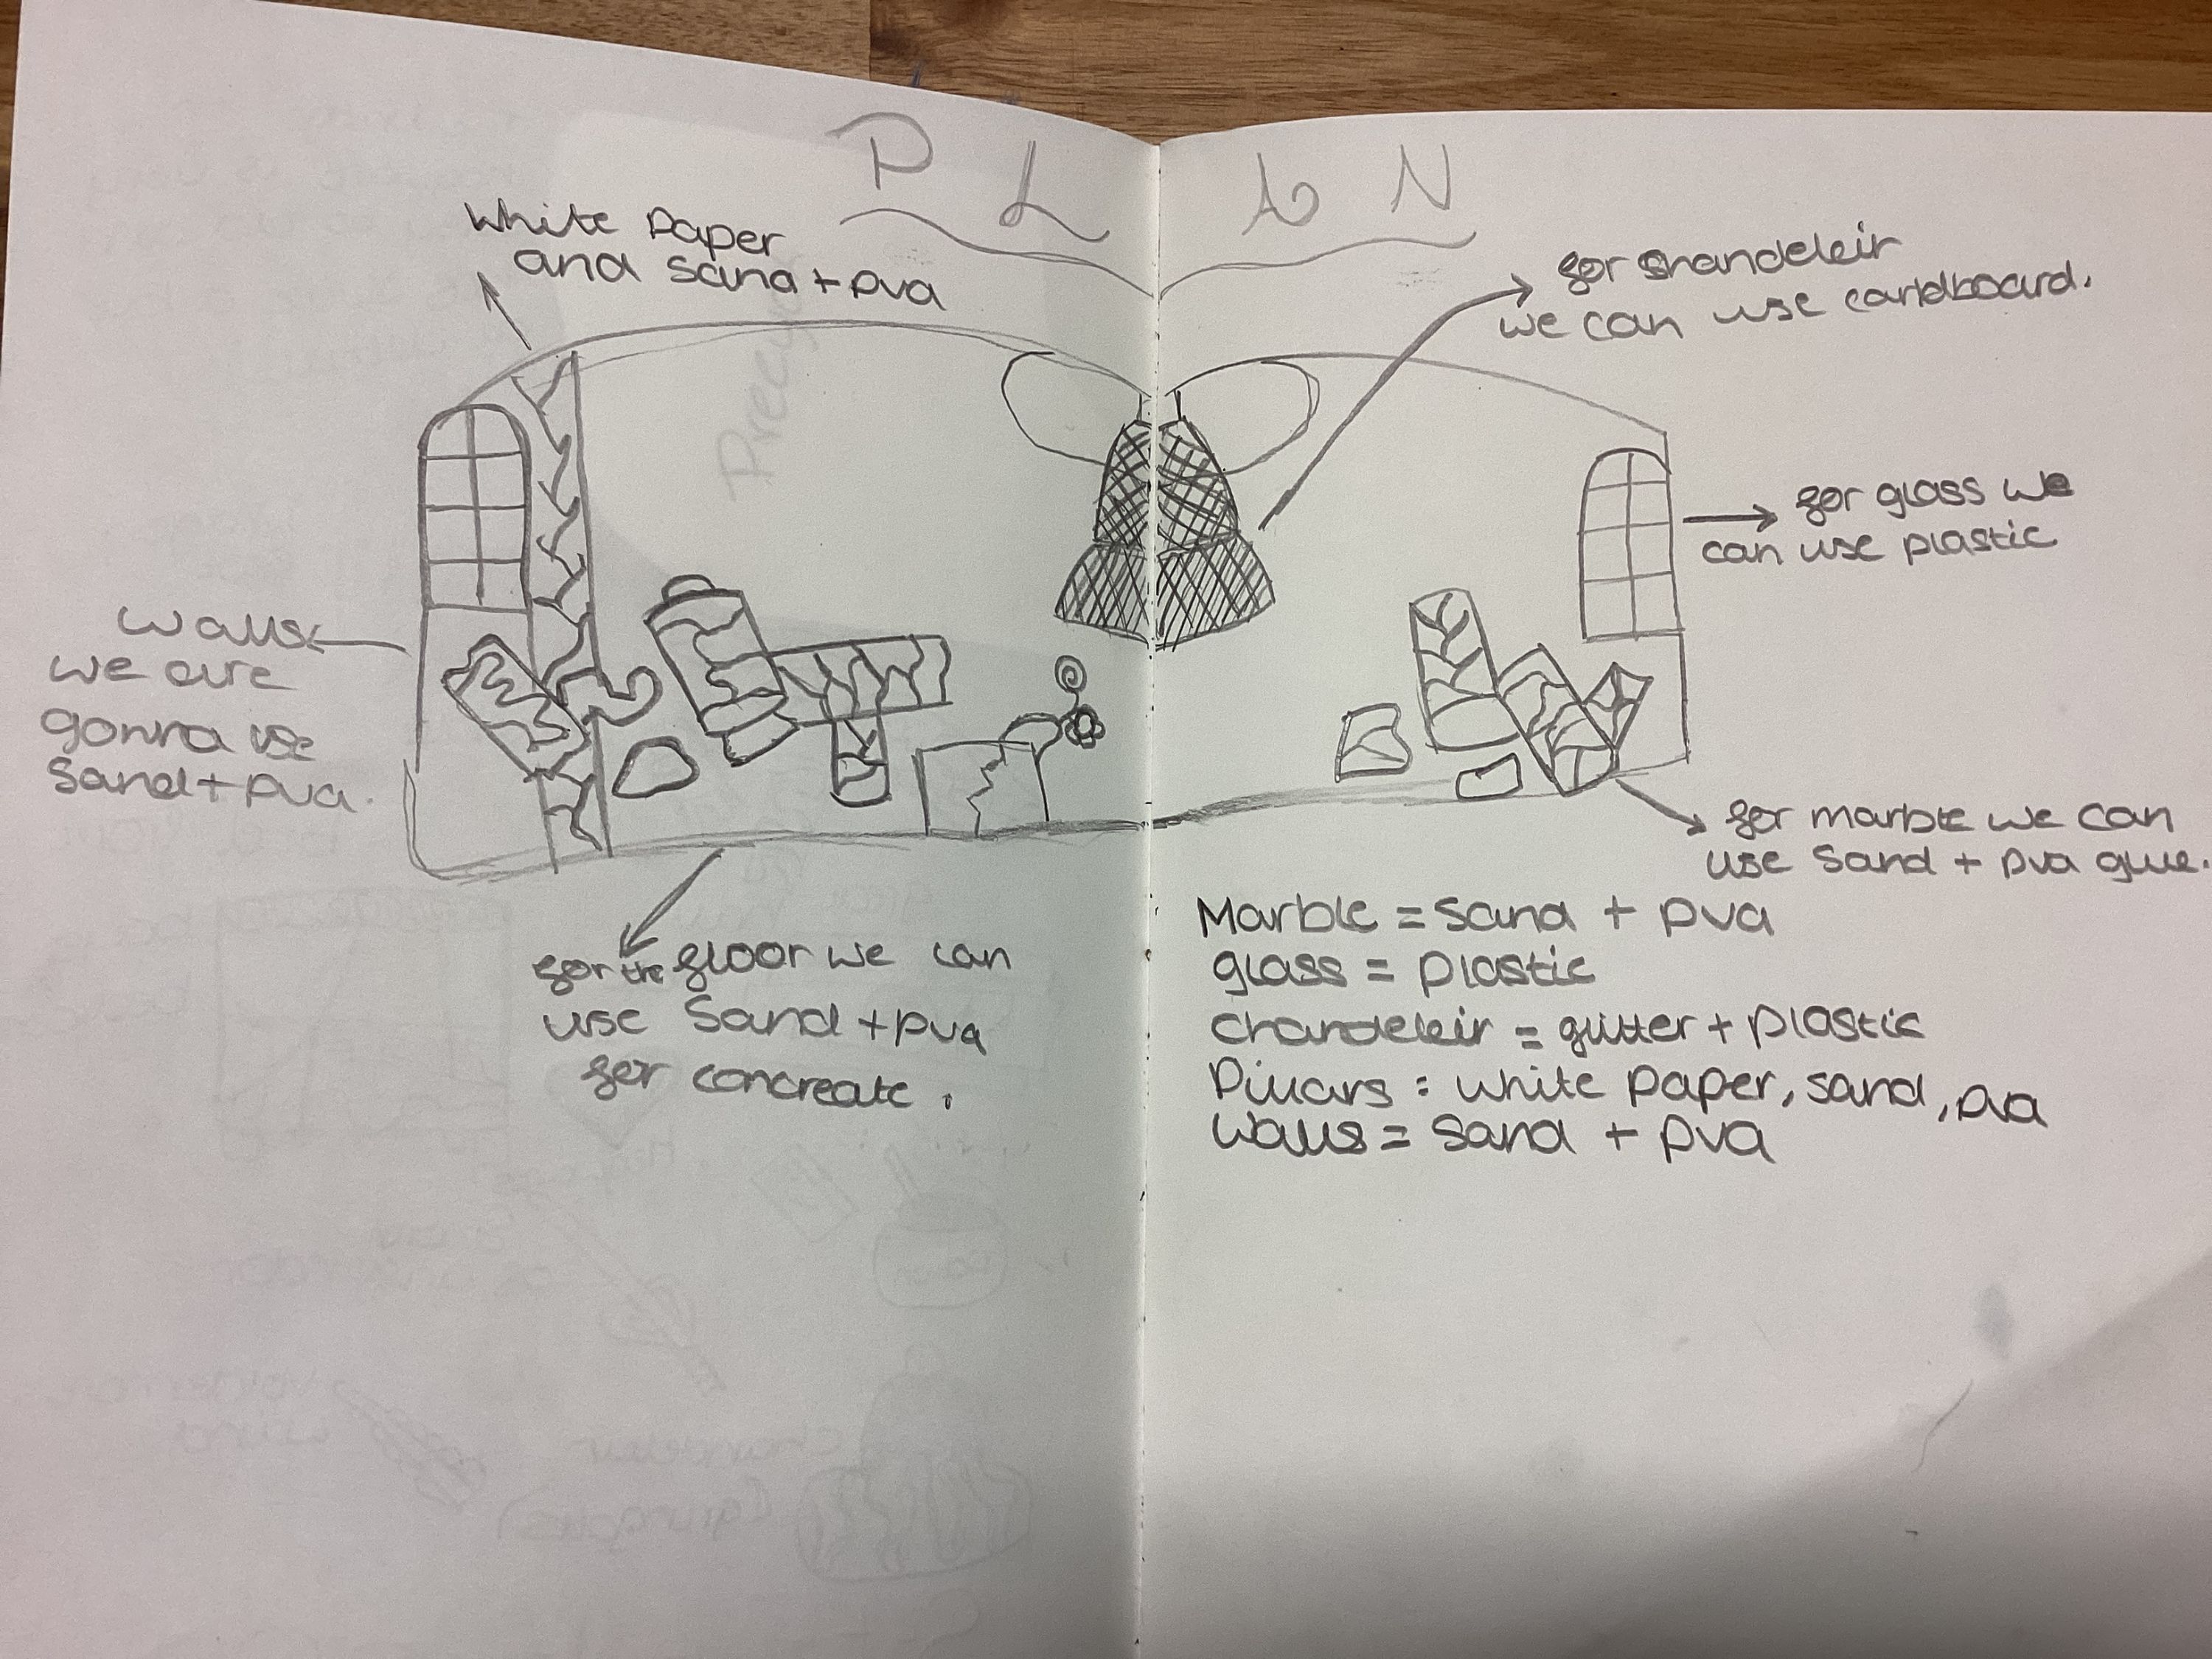 PLAN
white paper
and sand + pva
for shandeleir
we can use cardboard.
for glass we
can use plastic
Walls
we are
gonna use
Sand + pva.
for marble we can
use sand + pva glue.
for the floor we can
use Sand + pva
for concreate.
Marble = sand + pva
glass = plastic
chandeleir = glitter + plastic
Pillars : white paper, sand, pva
Walls = sand + pva